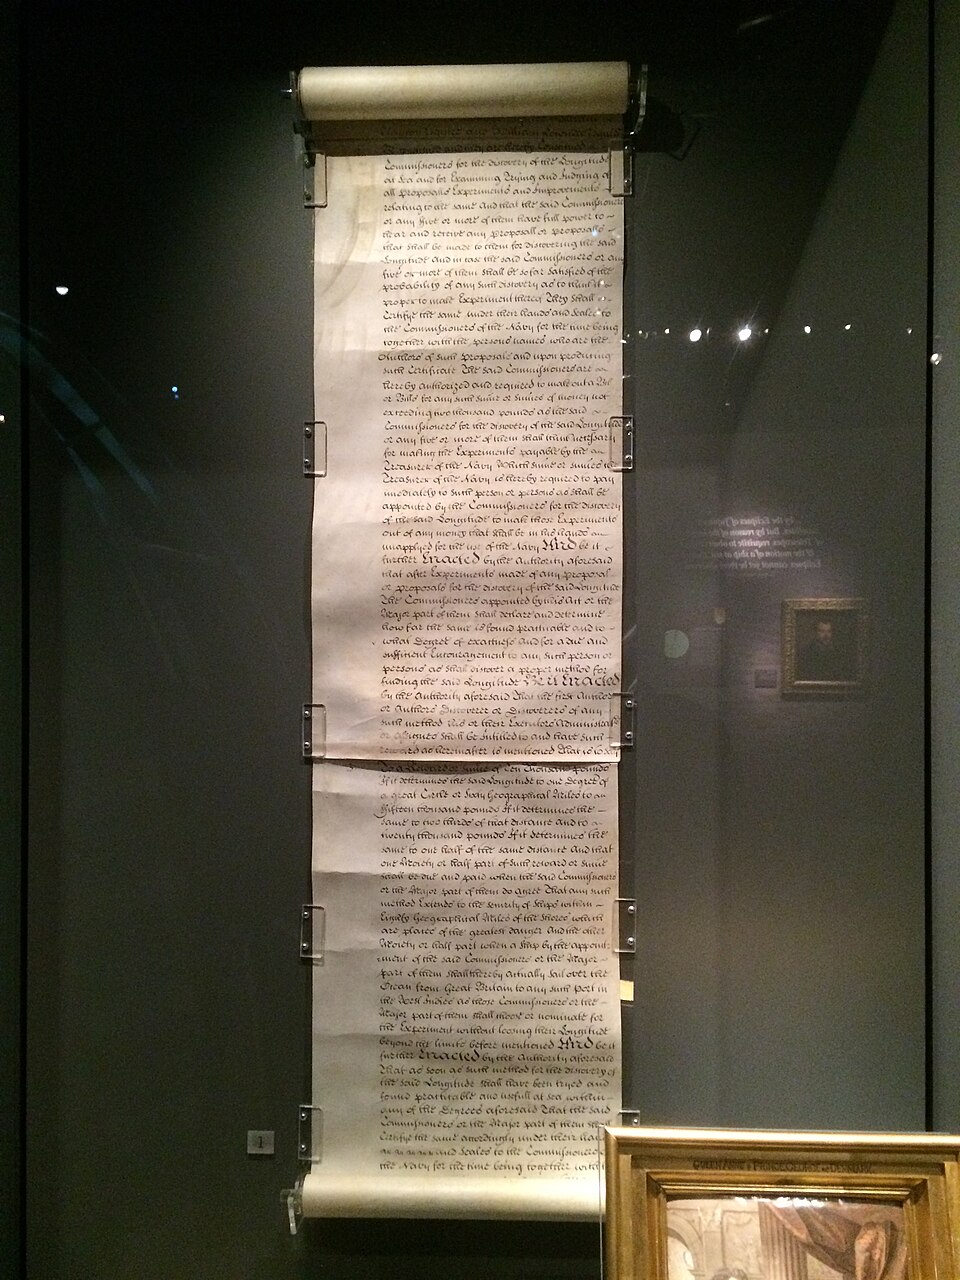 Commissioners for the discovery of the Longitude
at Sea and for Examining Trying and Judging of
all proposalls Experiments and Improvements
relating to the same And that the said Commissioners
or any five or more of them have full power to
hear and receive any proposall or proposalls
that shall be made to them for discovering the said
Longitude And in case the said Commissioners or any
five or more of them shall be so far satisfied of the
probability of any such discovery as to think it
proper to make Experiment thereof They shall
Certifye the same under their hands and seales to
the Commissioners of the Navy for the time being
together with the persons names who are the
Authors of such proposals and upon producing
such Certificate The said Commissioners are
hereby authorized and required to make out a Bill
or Bills for any such summ or summs of money not
exceeding two thousand pounds as the said
Commissioners for the discovery of the said Longitude
or any five or more of them shall think necessary
for making the Experiments payable by the
Treasurer of the Navy Which summ or summs the
Treasurer of the Navy is hereby required to pay
immediately to such person or persons as shall be
appointed by the Commissioners for the discovery
of the said Longitude to make those Experiments
out of any money that shall be in his hands
unapplyed for the use of the Navy And be it
further Enacted by the Authority aforesaid
that after Experiments made of any proposal
or proposals for the discovery of the said Longitude
The Commissioners appointed by this Act or the
Major part of them shall declare and determine
how far the same is found practicable and to
what Degree of exactness And for a due and
sufficient Encouragement to any such person or
persons as shall discover a proper method for
finding the said Longitude Be it Enacted
by the Authority aforesaid That the first Author
or Authors Discoverer or Discoverers of any
such method his or their Executors Administrators
or Assignes shall be intitled to and have such
reward as hereinafter is mentioned That is to say
To a Reward or summ of Ten Thousand pounds
If it determines the said Longitude to one Degree of
a great Circle or Sixty Geographical Miles to
fifteen thousand pounds If it determines the
same to two thirds of that distance and to
twenty thousand pounds If it determines the
same to one half of the same distance And that
one Moiety or half part of such reward or summ
shall be due and paid when the said Commissioners
or the Major part of them do agree That any such
method Extends to the security of ships within
Eighty Geographical Miles of the Shores which
are places of the greatest danger And the other
Moiety or half part when a Ship by the appoint
ment of the said Commissioners or the Major
part of them shall thereby actually sail over the
Ocean from Great Britain to any such Port in
the West Indies as those Commissioners or the
Major part of them shall choose or nominate for
the Experiment without loosing their Longitude
beyond the limits before mentioned And be it
further Enacted by the Authority aforesaid
That as soon as such method for the discovery of
the said Longitude shall have been tryed and
found practicable and usefull at sea within
any of the Degrees aforesaid That the said
Commissioners or the Major part of them
Certifye the same accordingly under their
and Seales to the Commissioners
the Navy for the time being together with
1